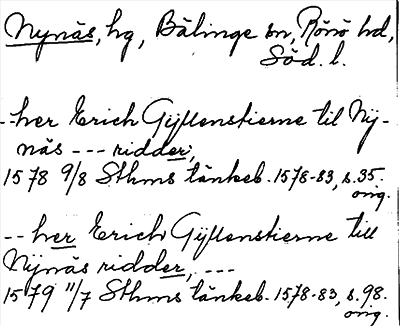 Nynäs, hg, Bälinge sn, Rönö hd,
Söd. l.
-- her Erich Gÿllenstierne til Nÿ-
näs --- ridder,
1578 9/8 Sthms tänkeb. 1578-83, s. 35.
orig.
-- her Erich Gÿllenstierne till
Nÿnäs ridder, ---
1579 11/7 Sthms tänkeb. 1578-83, s. 98.
orig.